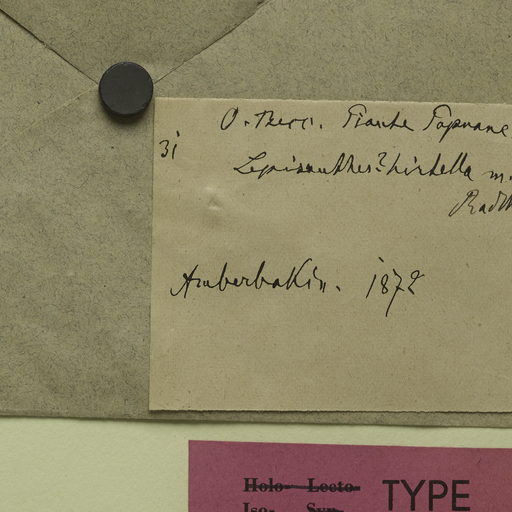 O. Becc. Piante Papuane
31
Lepisanthes? hirtella m.
Radlk
Amberbakin. 1872
Holo- Lecto-
TYPE
Iso- Syn-